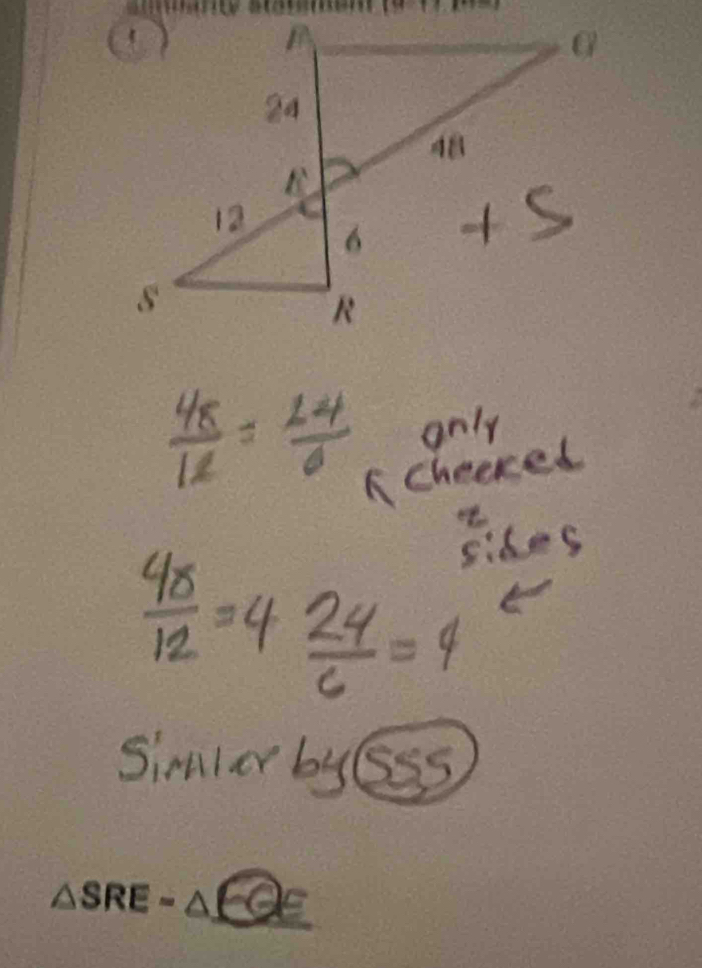 1
24
48
12
6
S
R
+ S
48/12 = 24/6
only
checked
2
sides
48/12 = 4 24/6 = 4
Similar by SSS
△SRE ~ △